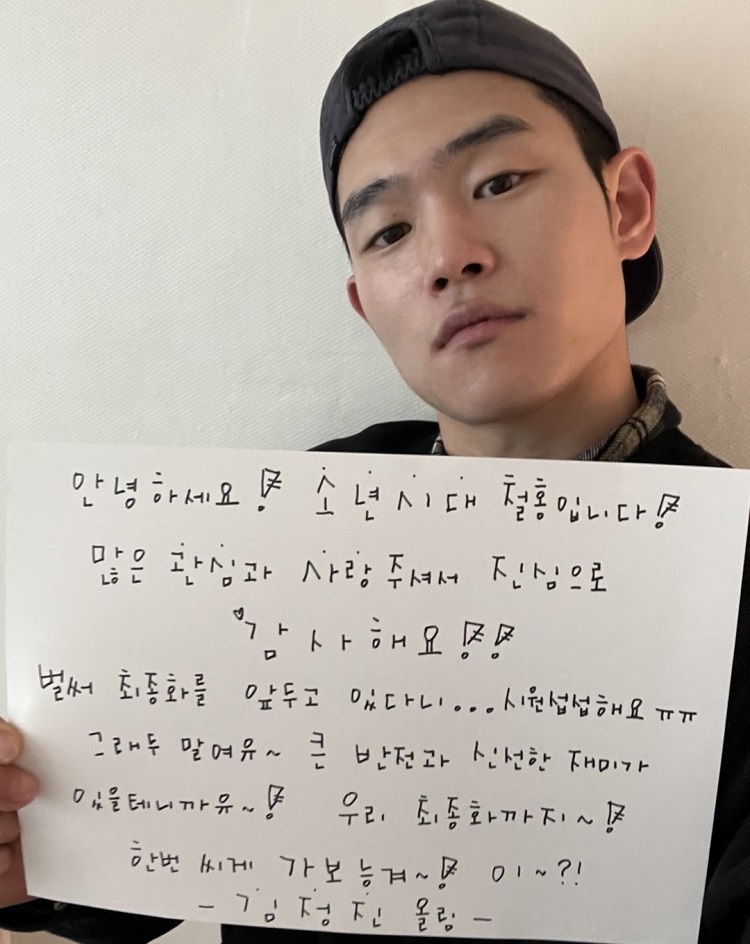 안녕하세요! 소년시대 철홍입니다!
많은 관심과 사랑 주셔서 진심으로
감사해요!!
벌써 최종화를 앞두고 있다니...시원섭섭해요 ㅠㅠ
그래두 말여유~ 큰 반전과 신선한 재미가
있을테니까유~! 우리 최종화까지~!
한번 씨게 가보는겨~! 이~?!
- 김정진 올림 -